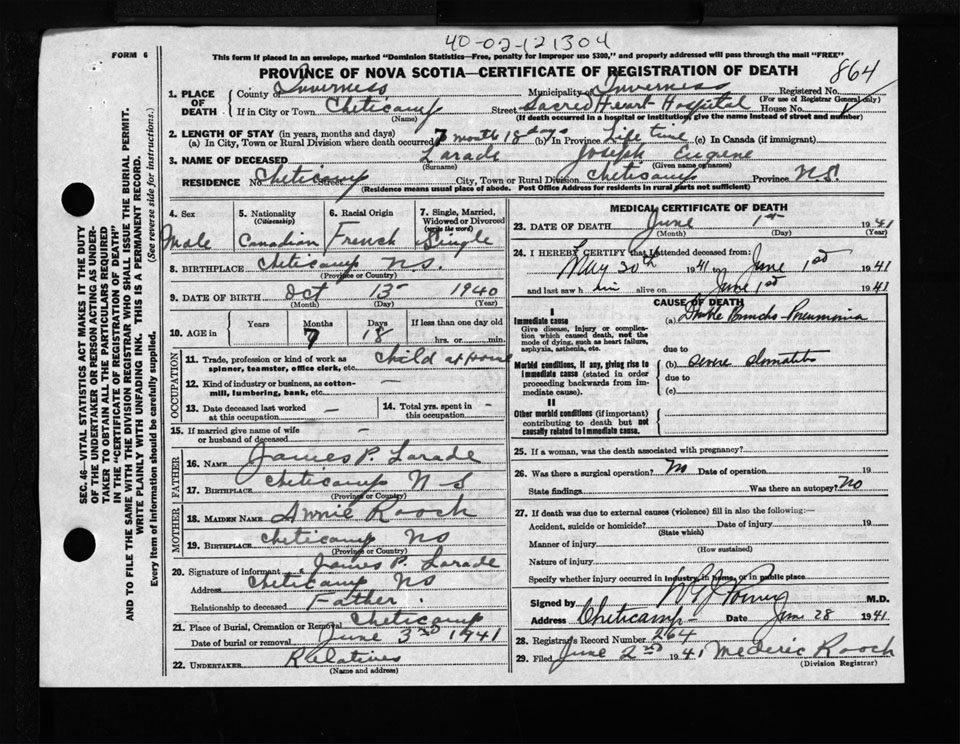 40-02-121304
FORM 6
This form if placed in an envelope, marked "Dominion Statistics—Free, penalty for improper use $300," and properly addressed will pass through the mail "FREE"
PROVINCE OF NOVA SCOTIA—CERTIFICATE OF REGISTRATION OF DEATH
864
1. PLACE OF DEATH
County of Inverness Municipality of Inverness Registered No.
(For use of Registrar General only)
If in City or Town Cheticamp Street Sacred Heart Hospital House No.
(Name) (If death occurred in a hospital or institution, give the name instead of street and number)
2. LENGTH OF STAY (in years, months and days)
(a) In City, Town or Rural Division where death occurred 7 months 18 days (b) In Province Life time (c) In Canada (if immigrant)
3. NAME OF DECEASED Larade Joseph Eugene
(Surname) (Given name or names)
RESIDENCE No. Cheticamp Street City, Town or Rural Division Cheticamp Province N.S.
(Residence means usual place of abode. Post Office Address for residents in rural parts not sufficient)
4. Sex
Male
5. Nationality
(Citizenship)
Canadian
6. Racial Origin
French
7. Single, Married, Widowed or Divorced
(write the word)
Single
8. BIRTHPLACE Cheticamp N.S.
(Province or Country)
9. DATE OF BIRTH Oct 13 1940
(Month) (Day) (Year)
10. AGE in
Years Months Days If less than one day old
7 18 hrs. or min.
OCCUPATION
11. Trade, profession or kind of work as spinner, teamster, office clerk, etc. Child at home
12. Kind of industry or business, as cotton-mill, lumbering, bank, etc. —
13. Date deceased last worked at this occupation —
14. Total yrs. spent in this occupation —
15. If married give name of wife or husband of deceased —
FATHER
16. NAME James P. Larade
17. BIRTHPLACE Cheticamp N S
(Province or Country)
MOTHER
18. MAIDEN NAME Annie Rooch
19. BIRTHPLACE Cheticamp NS
(Province or Country)
20. Signature of informant James P. Larade
Address Cheticamp NS
Relationship to deceased Father.
21. Place of Burial, Cremation or Removal Cheticamp
Date of burial or removal June 3rd 1941
22. UNDERTAKER Relatives
(Name and address)
MEDICAL CERTIFICATE OF DEATH
23. DATE OF DEATH June 1st 1941
(Month) (Day) (Year)
24. I HEREBY CERTIFY that I attended deceased from
May 20th 1941 to June 1st 1941
and last saw him alive on June 1st 1941
CAUSE OF DEATH
I
Immediate cause
Give disease, injury or complication which caused death, not the mode of dying, such as heart failure, asphyxia, asthenia, etc.
(a) Double Broncho-Pneumonia
due to
Morbid conditions, if any, giving rise to immediate cause (stated in order proceeding backwards from immediate cause).
(b) severe stomatitis
due to
(c)
II
Other morbid conditions (if important) contributing to death but not causally related to immediate cause.
25. If a woman, was the death associated with pregnancy?
26. Was there a surgical operation? No Date of operation 19
State findings Was there an autopsy? No
27. If death was due to external causes (violence) fill in also the following:—
Accident, suicide or homicide? Date of injury 19
(State which)
Manner of injury
(How sustained)
Nature of injury
Specify whether injury occurred in industry, in home, or in public place
Signed by M.D.
Address Cheticamp Date June 28 1941
28. Registrar's Record Number 264
29. Filed June 2nd 1941 Mederic Rooch
(Division Registrar)
SEC. 46—VITAL STATISTICS ACT MAKES IT THE DUTY
OF THE UNDERTAKER OR PERSON ACTING AS UNDER-
TAKER TO OBTAIN ALL THE PARTICULARS REQUIRED
IN THE "CERTIFICATE OF REGISTRATION OF DEATH"
AND TO FILE THE SAME WITH THE DIVISION REGISTRAR WHO SHALL ISSUE THE BURIAL PERMIT.
WRITE PLAINLY WITH UNFADING INK. THIS IS A PERMANENT RECORD.
Every item of information should be carefully supplied. (See reverse side for instructions.)